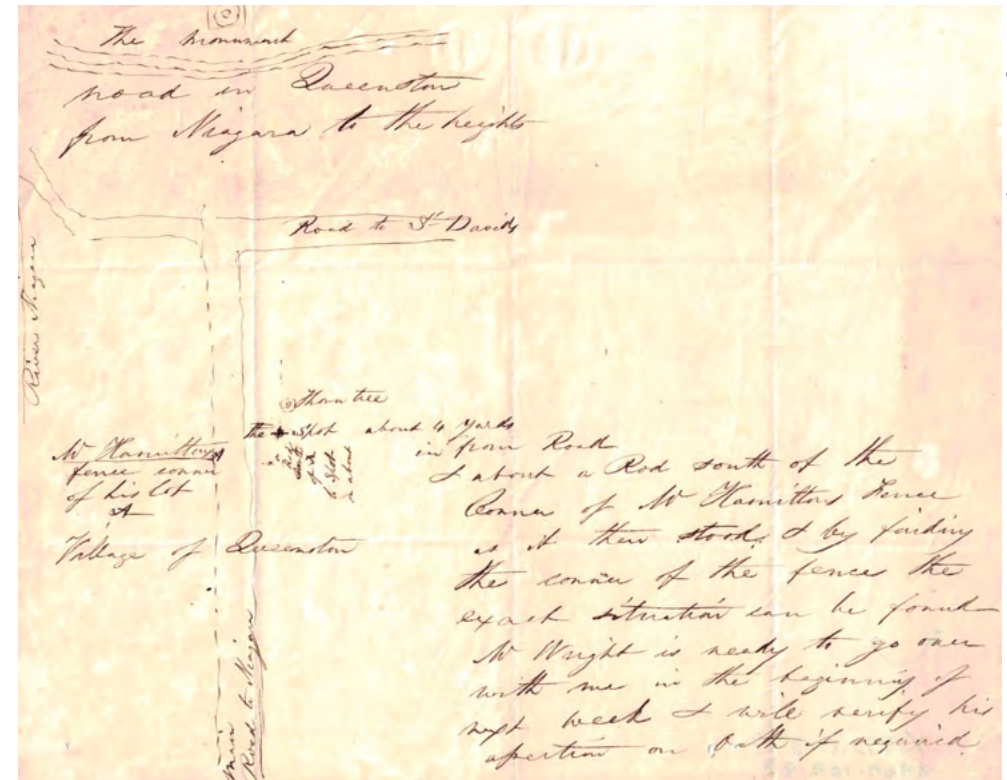 The Monument
road in Queenston
from Niagara to the heights
Road to St Davids
River Niagara
Thorn tree
the Spot about 4 yards
in from Road
Mr Hamiltons
fence corner
of his lot
A
Village of Queenston
Road to Niagara
& about a Rod south of the
Corner of Mr Hamiltons Fence
as it then stood. & by finding
the corner of the fence the
exact situation can be found
Mr Wright is ready to go over
with me in the beginning of
next week & will verify his
assertion on Oath if required.